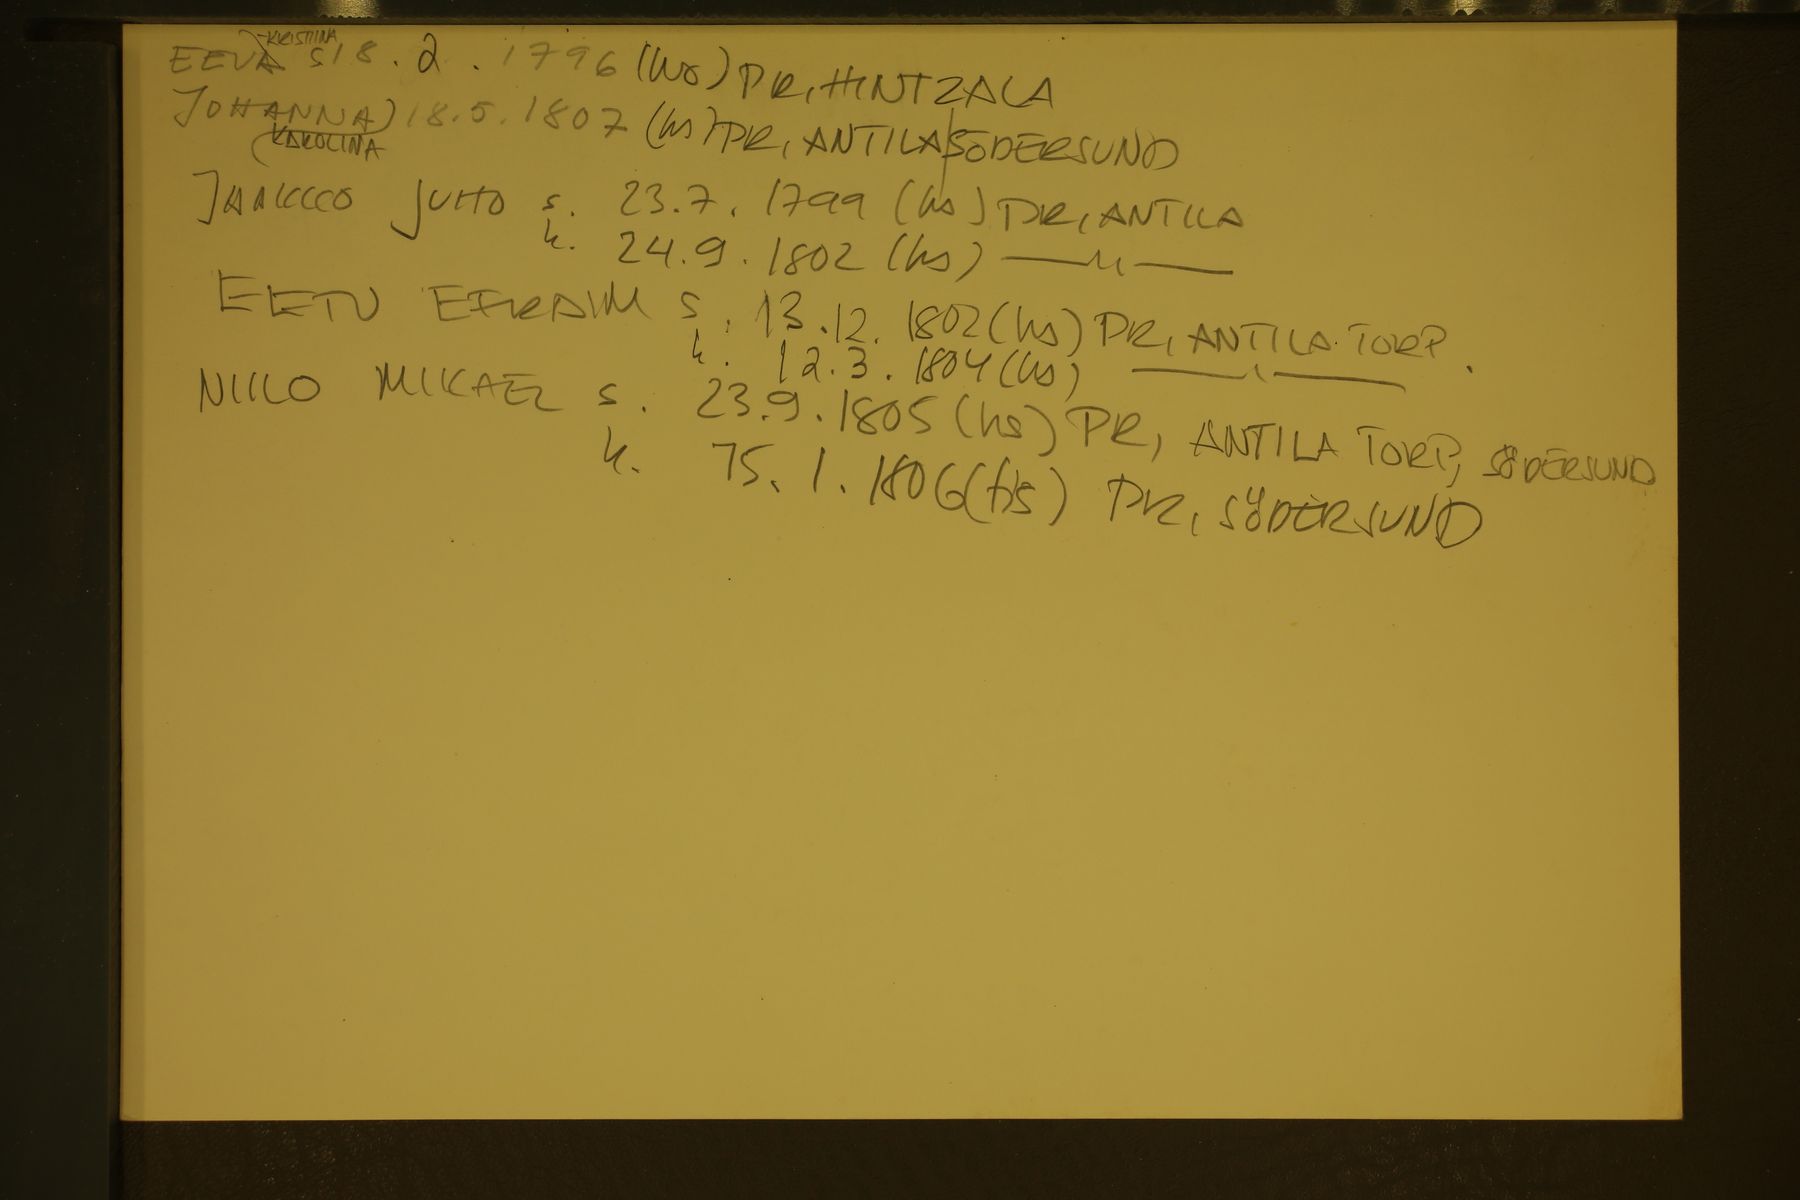 EEVA KRISTIINA S18.2.1796 (hs) PR, HINTZALA
JOHANNA) 18.5.1807 (hs) PR, ANTILA/SÖDERSUND
(KAROLINA
JAAKKO JUHO s. 23.7.1799 (hs) PR, ANTILA
k. 24.9.1802 (hs) —〃—
EETU EFRAIM s. 13.12.1802 (hs) PR, ANTILA TORP.
k. 12.3.1804 (hs) —〃—
NIILO MIKAEL s. 23.9.1805 (hs) PR, ANTILA TORP, SÖDERSUND
k. 15.1.1806 (hs) PR, SÖDERSUND